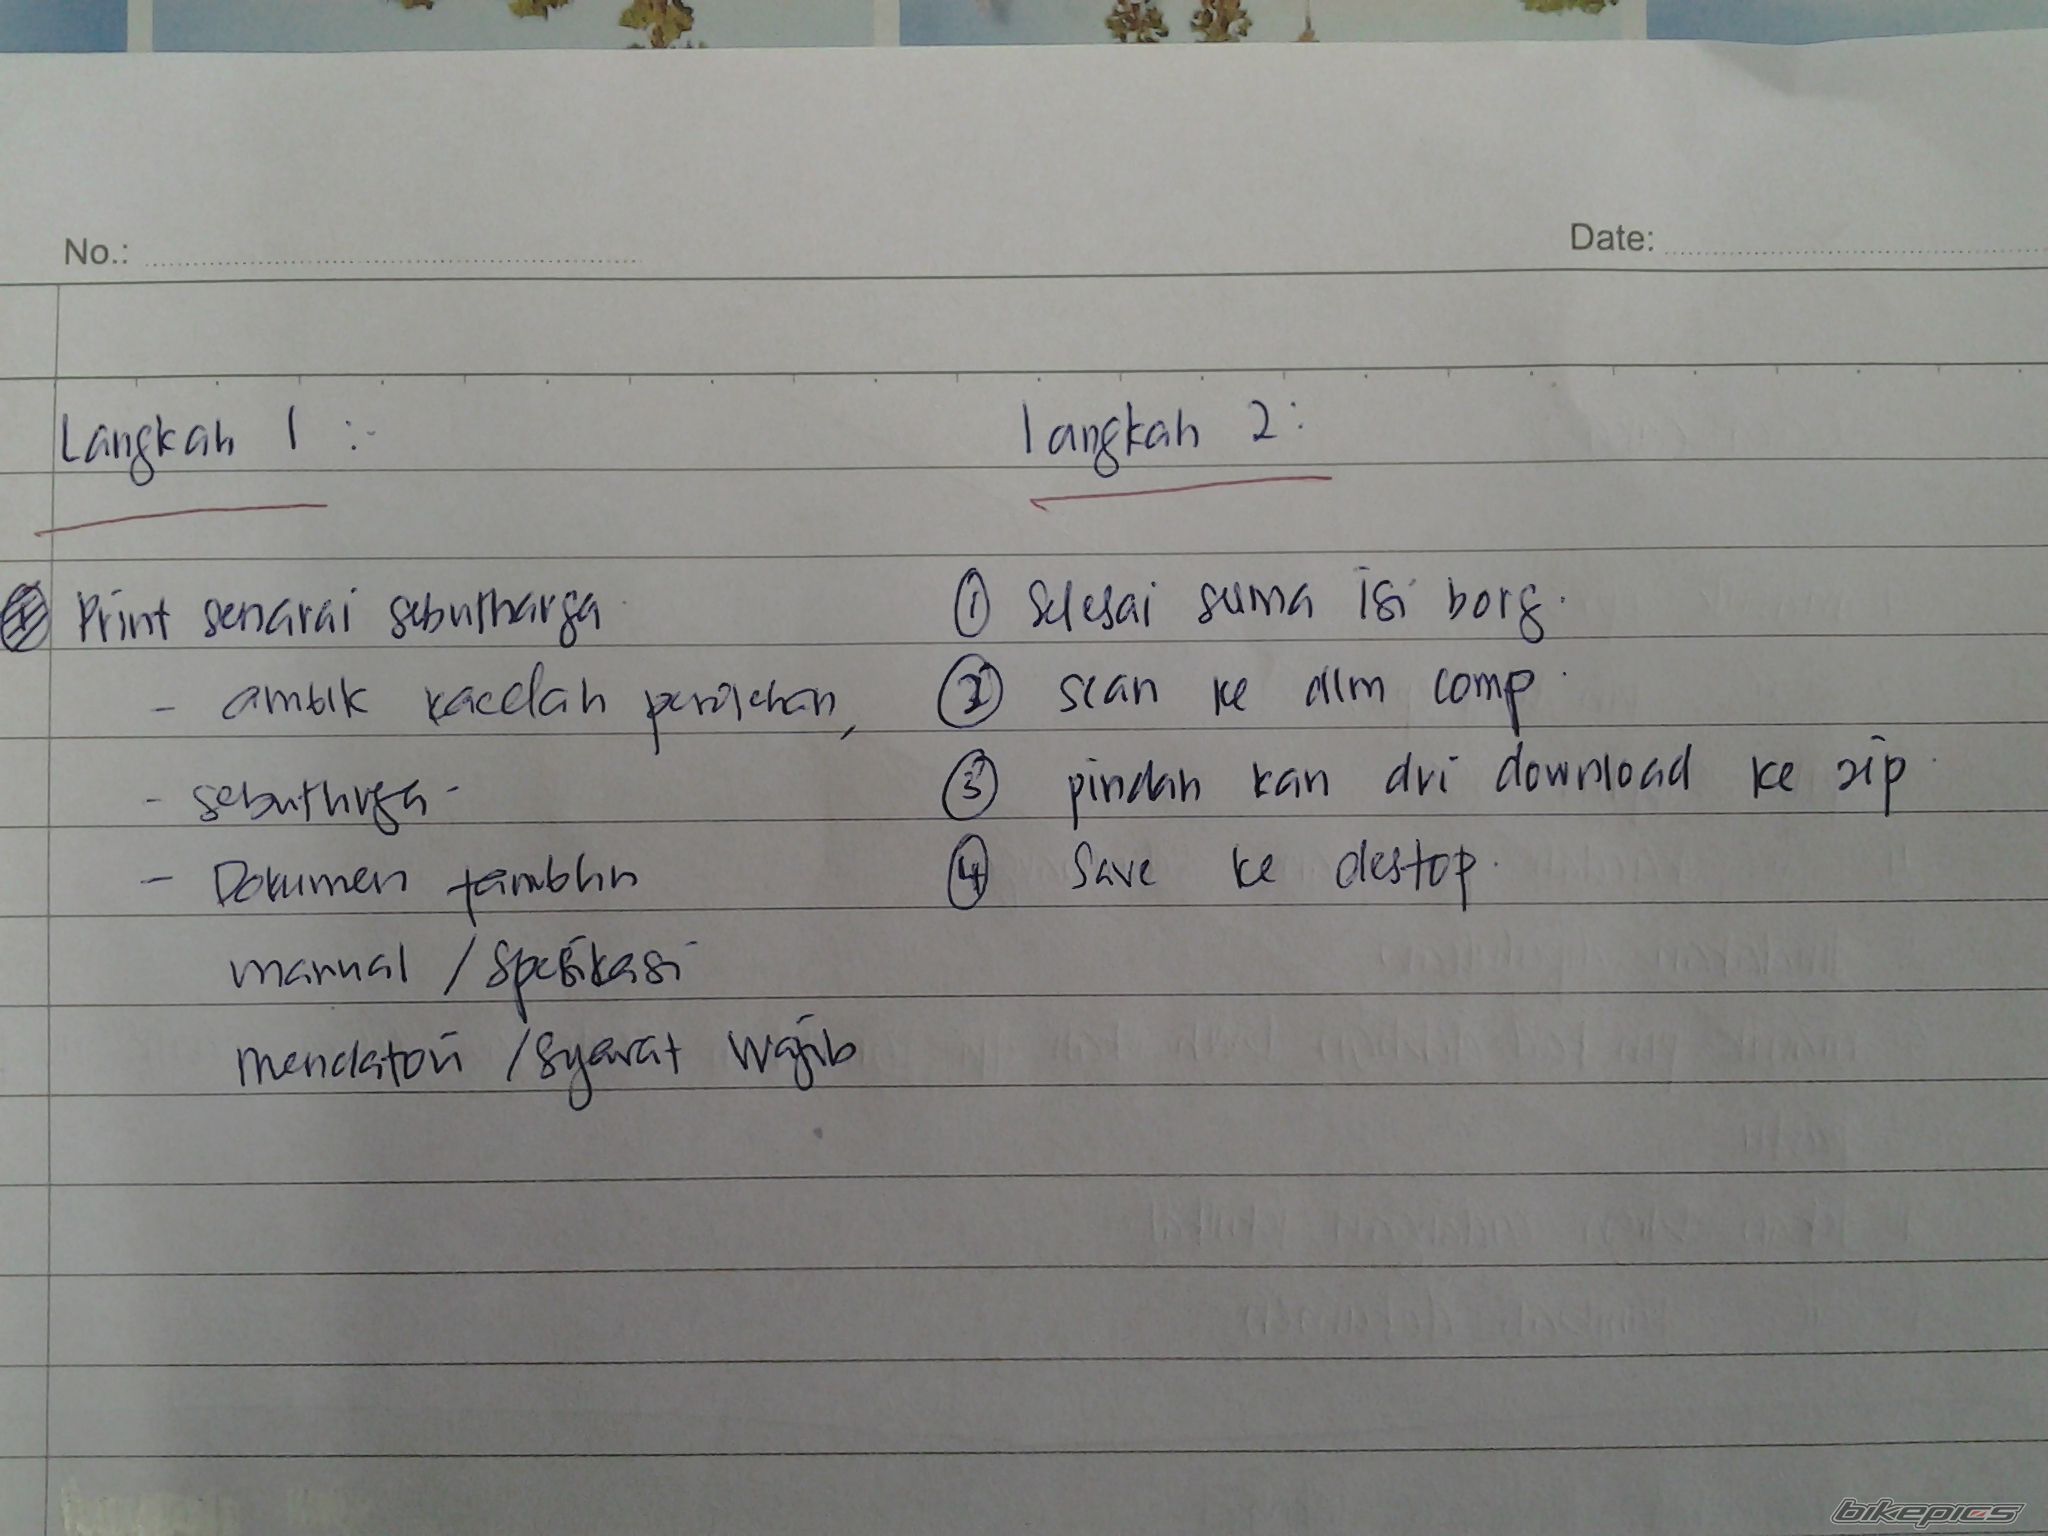 No.:
Date:
Langkah 1 :-
Print senarai sebutharga
- ambik kaedah perolehan,
- sebuthrga -
- Dokumen tambhn
manual / spesikasi
mendatori / syarat wajib
langkah 2 :
① Selesai suma isi borg.
② scan ke dlm comp.
③ pindah kan dri download ke zip.
④ Save ke destop.
bikepics